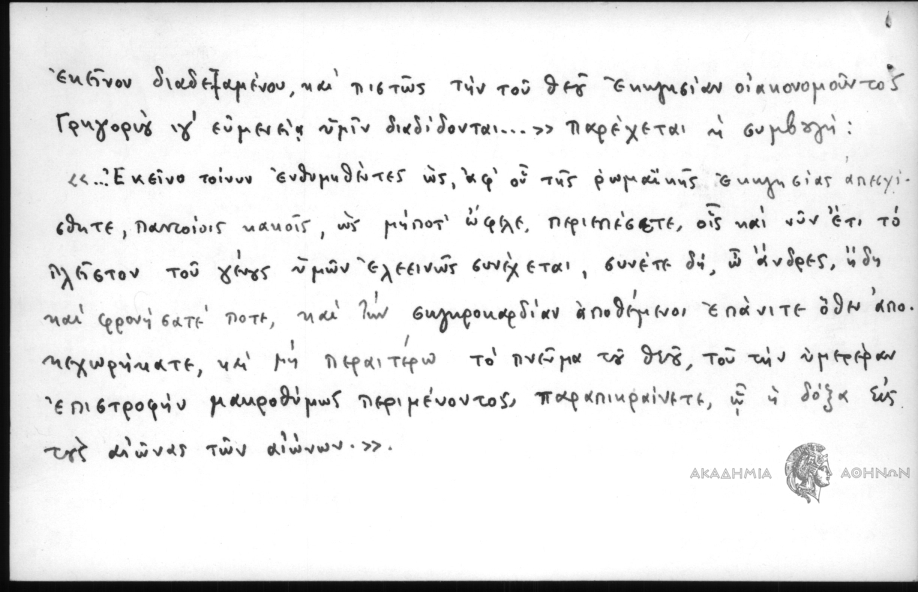 ἐκείνου διαδεξαμένου, καὶ πιστῶς τὴν τοῦ θεοῦ ἐκκλησίαν οἰακονομοῦντος
Γρηγορίου ιγ' εὐμενείᾳ ὑμῖν διαδίδονται...» παρέχεται ἡ συμβουλή:
«...Ἐκεῖνο τοίνυν ἐνθυμηθέντες ὡς, ἀφ' οὗ τῆς ῥωμαϊκῆς ἐκκλησίας ἀπεσχί-
σθητε, παντοίοις κακοῖς, ὡς μήποτ' ὤφελε, περιεπέσετε, οἷς καὶ νῦν ἔτι τὸ
πλεῖστον τοῦ γένους ὑμῶν ἐλεεινῶς συνέχεται, συνέτε δή, ὦ ἄνδρες, ἤδη
καὶ φρονήσατέ ποτε, καὶ τὴν σκληροκαρδίαν ἀποθέμενοι ἐπάνιτε ὅθεν ἀπο-
κεχωρήκατε, καὶ μὴ περαιτέρω τὸ πνεῦμα τοῦ θεοῦ, τοῦ τὴν ὑμετέραν
ἐπιστροφὴν μακροθύμως περιμένοντος, παραπικραίνετε, ᾧ ἡ δόξα εἰς
τοὺς αἰῶνας τῶν αἰώνων.».
ΑΚΑΔΗΜΙΑ ΑΘΗΝΩΝ